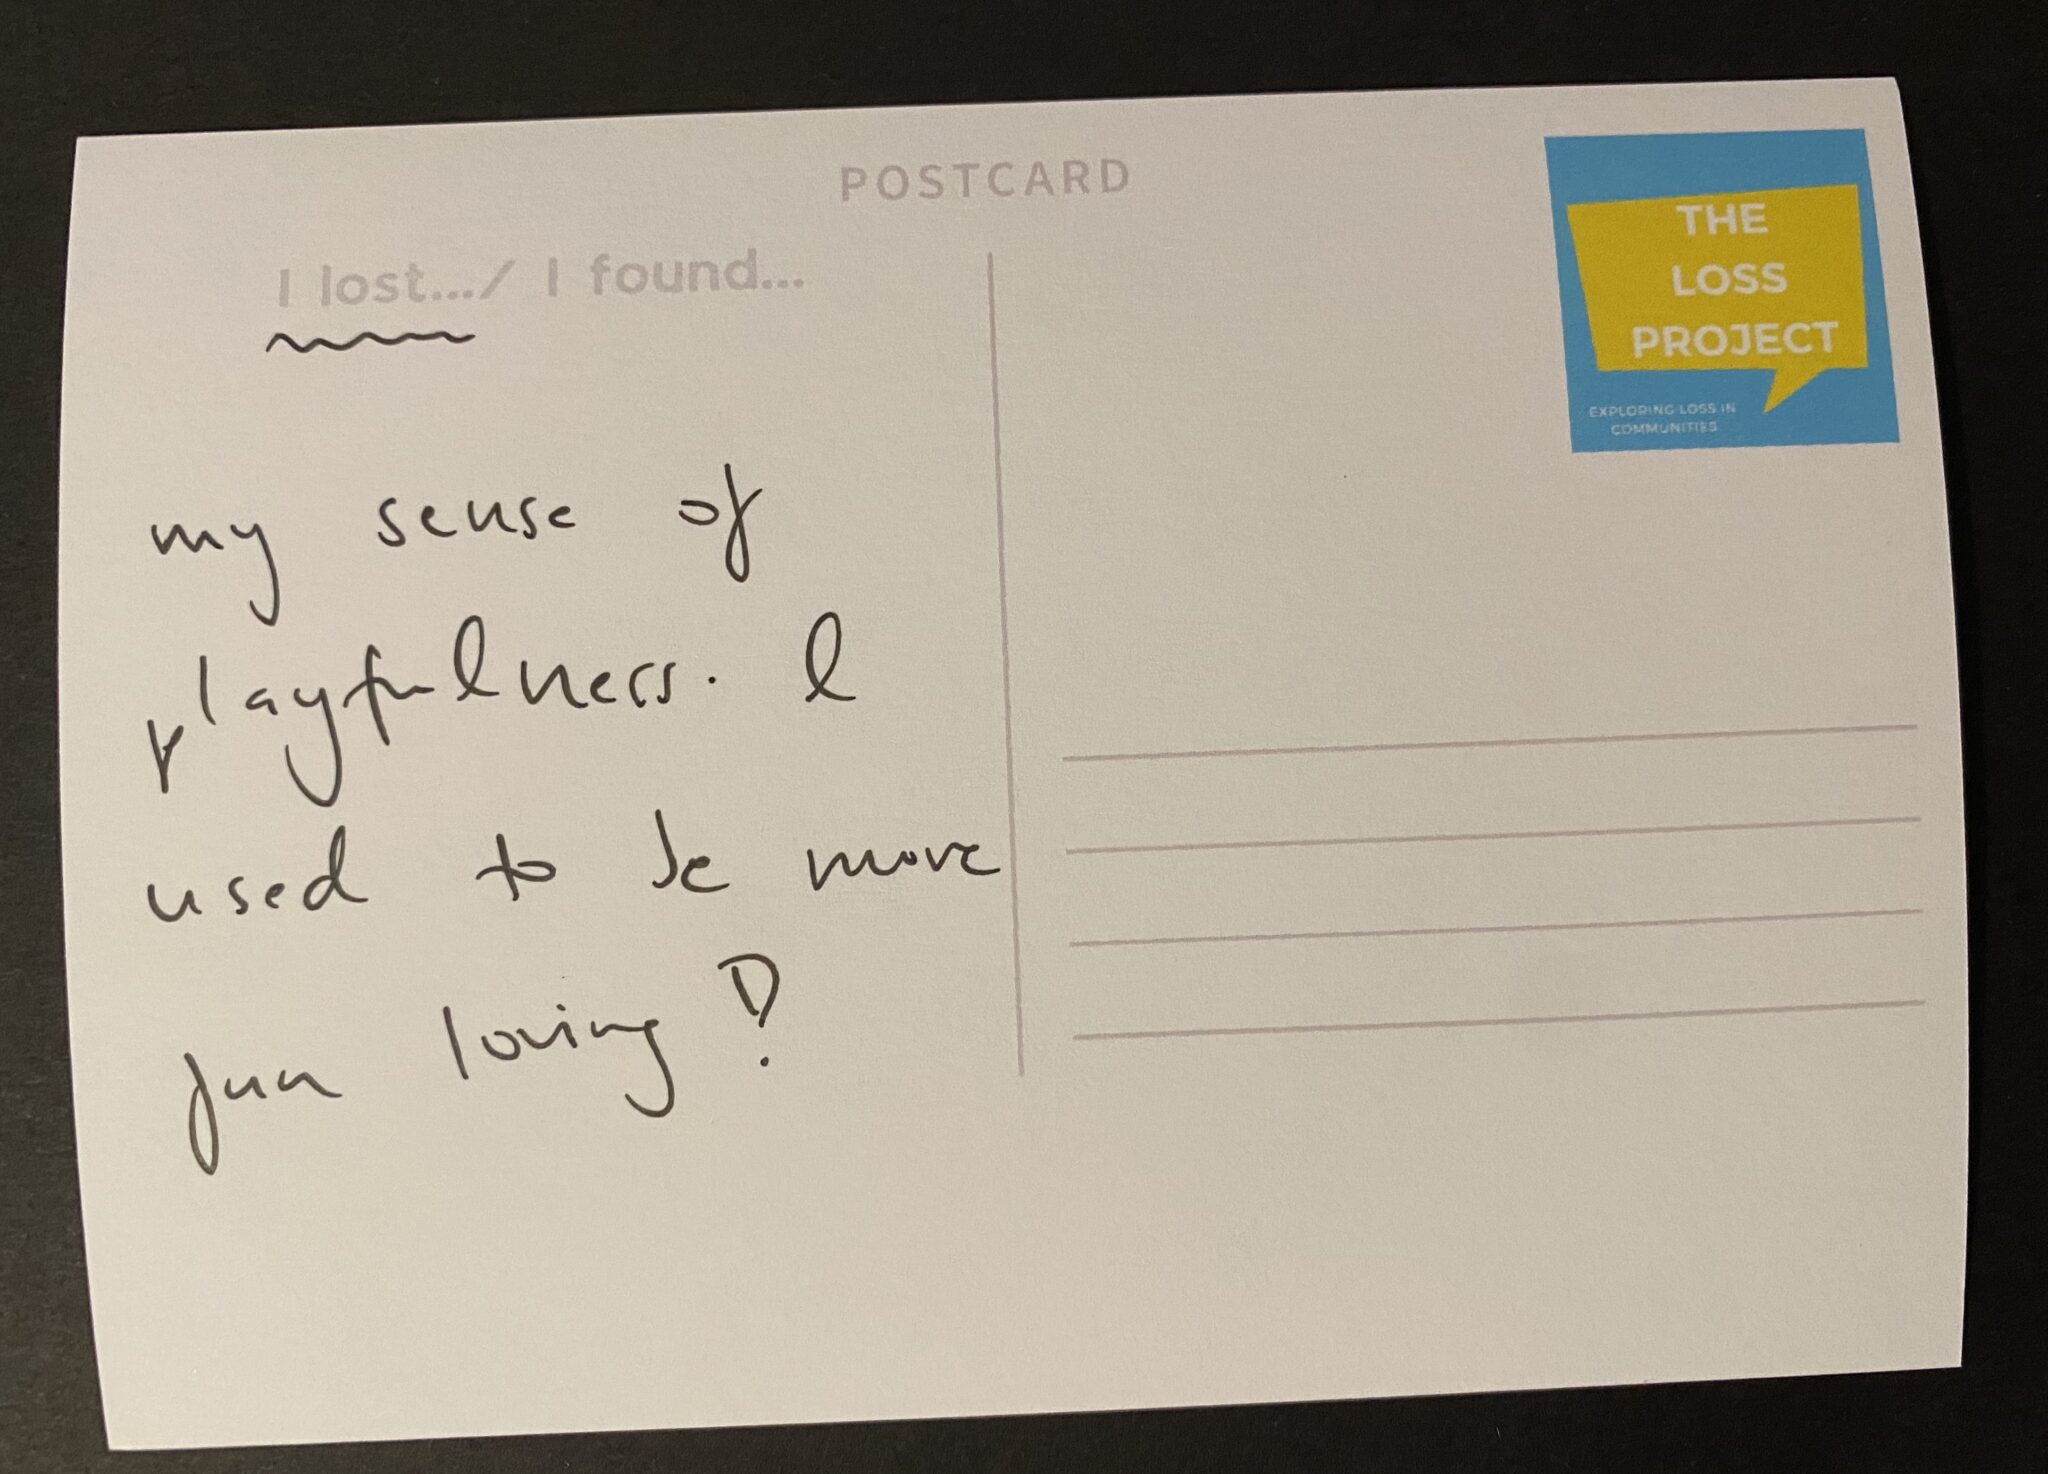 POSTCARD
I lost.../ I found...
THE
LOSS
PROJECT
EXPLORING LOSS IN
COMMUNITIES
my sense of
playfulness. I
used to be more
fun loving?